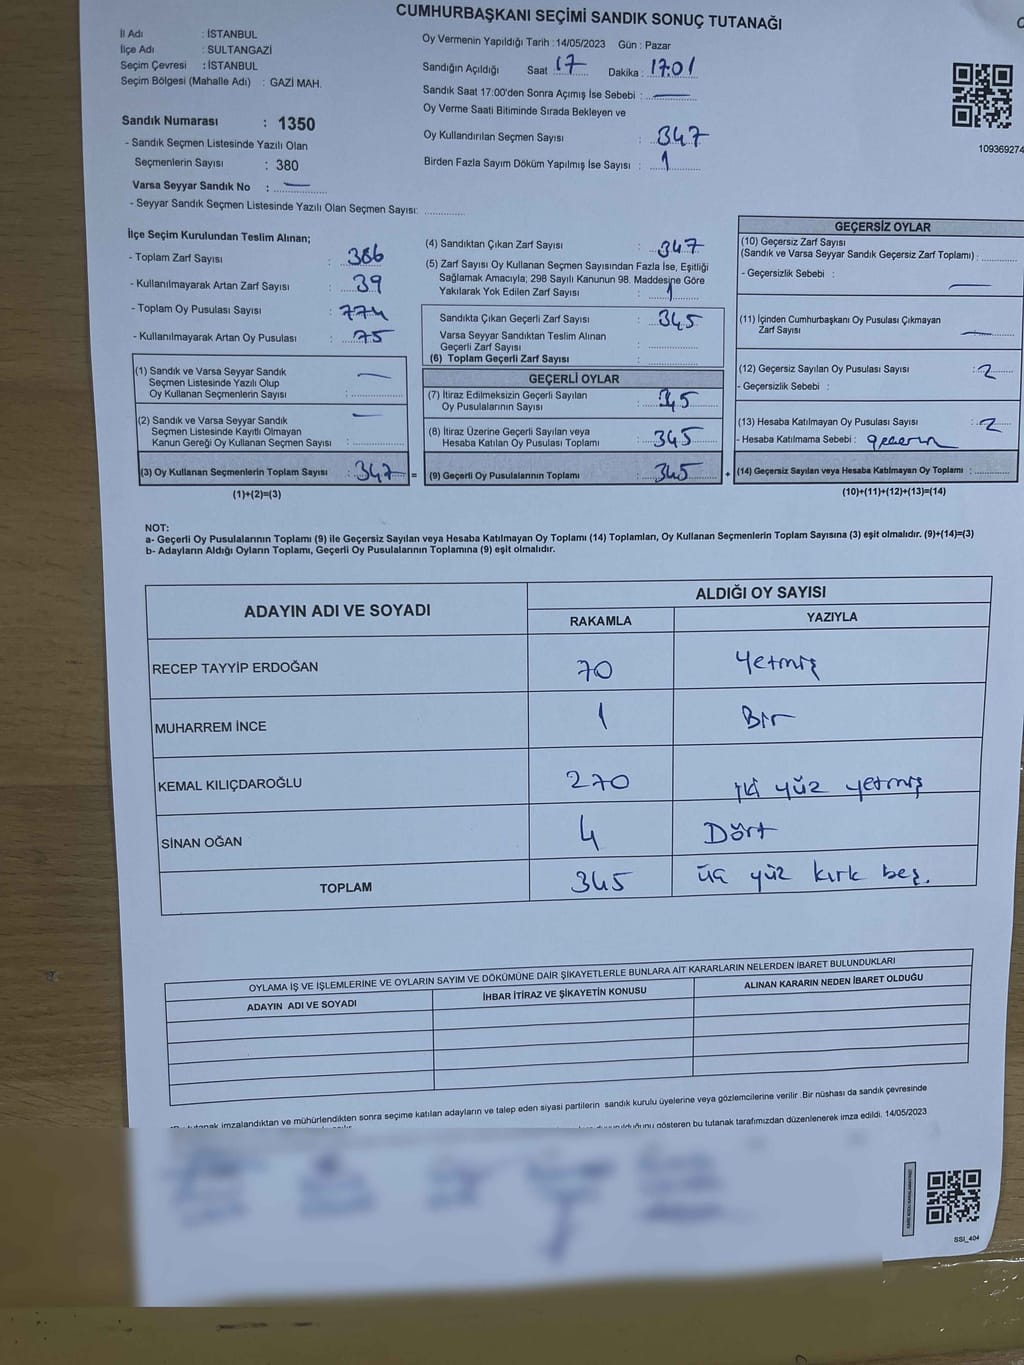 CUMHURBAŞKANI SEÇİMİ SANDIK SONUÇ TUTANAĞI
İl Adı : İSTANBUL
İlçe Adı : SULTANGAZİ
Seçim Çevresi : İSTANBUL
Seçim Bölgesi (Mahalle Adı) : GAZİ MAH.
Sandık Numarası : 1350
- Sandık Seçmen Listesinde Yazılı Olan
Seçmenlerin Sayısı : 380
Varsa Seyyar Sandık No : —
- Seyyar Sandık Seçmen Listesinde Yazılı Olan Seçmen Sayısı:
Oy Vermenin Yapıldığı Tarih : 14/05/2023 Gün : Pazar
Sandığın Açıldığı Saat 17 Dakika : 17.01
Sandık Saat 17:00'den Sonra Açımış İse Sebebi : —
Oy Verme Saati Bitiminde Sırada Bekleyen ve
Oy Kullandırılan Seçmen Sayısı : 347
Birden Fazla Sayım Döküm Yapılmış İse Sayısı : 1
109369274
İlçe Seçim Kurulundan Teslim Alınan;
- Toplam Zarf Sayısı : 386
- Kullanılmayarak Artan Zarf Sayısı : 39
- Toplam Oy Pusulası Sayısı : 774
- Kullanılmayarak Artan Oy Pusulası : 75
(1) Sandık ve Varsa Seyyar Sandık
Seçmen Listesinde Yazılı Olup
Oy Kullanan Seçmenlerin Sayısı : —
(2) Sandık ve Varsa Seyyar Sandık
Seçmen Listesinde Kayıtlı Olmayan
Kanun Gereği Oy Kullanan Seçmen Sayısı : —
(3) Oy Kullanan Seçmenlerin Toplam Sayısı : 347 =
(1)+(2)=(3)
(4) Sandıktan Çıkan Zarf Sayısı : 347
(5) Zarf Sayısı Oy Kullanan Seçmen Sayısından Fazla İse, Eşitliği
Sağlamak Amacıyla; 298 Sayılı Kanunun 98. Maddesine Göre
Yakılarak Yok Edilen Zarf Sayısı : 1
Sandıkta Çıkan Geçerli Zarf Sayısı : 345
Varsa Seyyar Sandıktan Teslim Alınan
Geçerli Zarf Sayısı :
(6) Toplam Geçerli Zarf Sayısı :
GEÇERLİ OYLAR
(7) İtiraz Edilmeksizin Geçerli Sayılan
Oy Pusulalarının Sayısı : 345
(8) İtiraz Üzerine Geçerli Sayılan veya
Hesaba Katılan Oy Pusulası Toplamı : 345
(9) Geçerli Oy Pusulalarının Toplamı : 345 +
GEÇERSİZ OYLAR
(10) Geçersiz Zarf Sayısı
(Sandık ve Varsa Seyyar Sandık Geçersiz Zarf Toplamı) :
- Geçersizlik Sebebi : —
(11) İçinden Cumhurbaşkanı Oy Pusulası Çıkmayan
Zarf Sayısı : —
(12) Geçersiz Sayılan Oy Pusulası Sayısı : 2
- Geçersizlik Sebebi :
(13) Hesaba Katılmayan Oy Pusulası Sayısı : 2
- Hesaba Katılmama Sebebi :
(14) Geçersiz Sayılan veya Hesaba Katılmayan Oy Toplamı :
(10)+(11)+(12)+(13)=(14)
NOT:
a- Geçerli Oy Pusulalarının Toplamı (9) ile Geçersiz Sayılan veya Hesaba Katılmayan Oy Toplamı (14) Toplamları, Oy Kullanan Seçmenlerin Toplam Sayısına (3) eşit olmalıdır. (9)+(14)=(3)
b- Adayların Aldığı Oyların Toplamı, Geçerli Oy Pusulalarının Toplamına (9) eşit olmalıdır.
ADAYIN ADI VE SOYADI ALDIĞI OY SAYISI
RAKAMLA YAZIYLA
RECEP TAYYİP ERDOĞAN 70 Yetmiş
MUHARREM İNCE 1 Bir
KEMAL KILIÇDAROĞLU 270 iki yüz yetmiş
SİNAN OĞAN 4 Dört
TOPLAM 345 üç yüz kırk beş.
OYLAMA İŞ VE İŞLEMLERİNE VE OYLARIN SAYIM VE DÖKÜMÜNE DAİR ŞİKAYETLERLE BUNLARA AİT KARARLARIN NELERDEN İBARET BULUNDUKLARI
ADAYIN ADI VE SOYADI İHBAR İTİRAZ VE ŞİKAYETİN KONUSU ALINAN KARARIN NEDEN İBARET OLDUĞU
tutanak imzalandıktan ve mühürlendikten sonra seçime katılan adayların ve talep eden siyasi partilerin sandık kurulu üyelerine veya gözlemcilerine verilir. Bir nüshası da sandık çevresinde
gösteren bu tutanak tarafımızdan düzenlenerek imza edildi. 14/05/2023
SSI_404